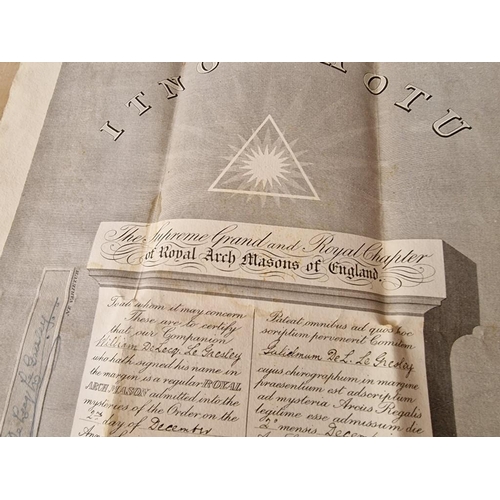 ITNO OTU
The Supreme Grand and Royal Chapter
of Royal Arch Masons of England.
To all whom it may concern
These are to certify
that our Companion
William DeLecq. Le Gresley
who hath signed his name in
the margin is a regular ROYAL
ARCH MASON admitted into the
mysteries of the Order on the
2nd day of December
Pateat omnibus ad quos hoc
scriptum pervenerit Comitem
DeL. Le Gresley
cujus chirographum in margine
praesentium est adscriptum
ad mysteria Arcus Regalis
legitime esse admissum die
2º mensis